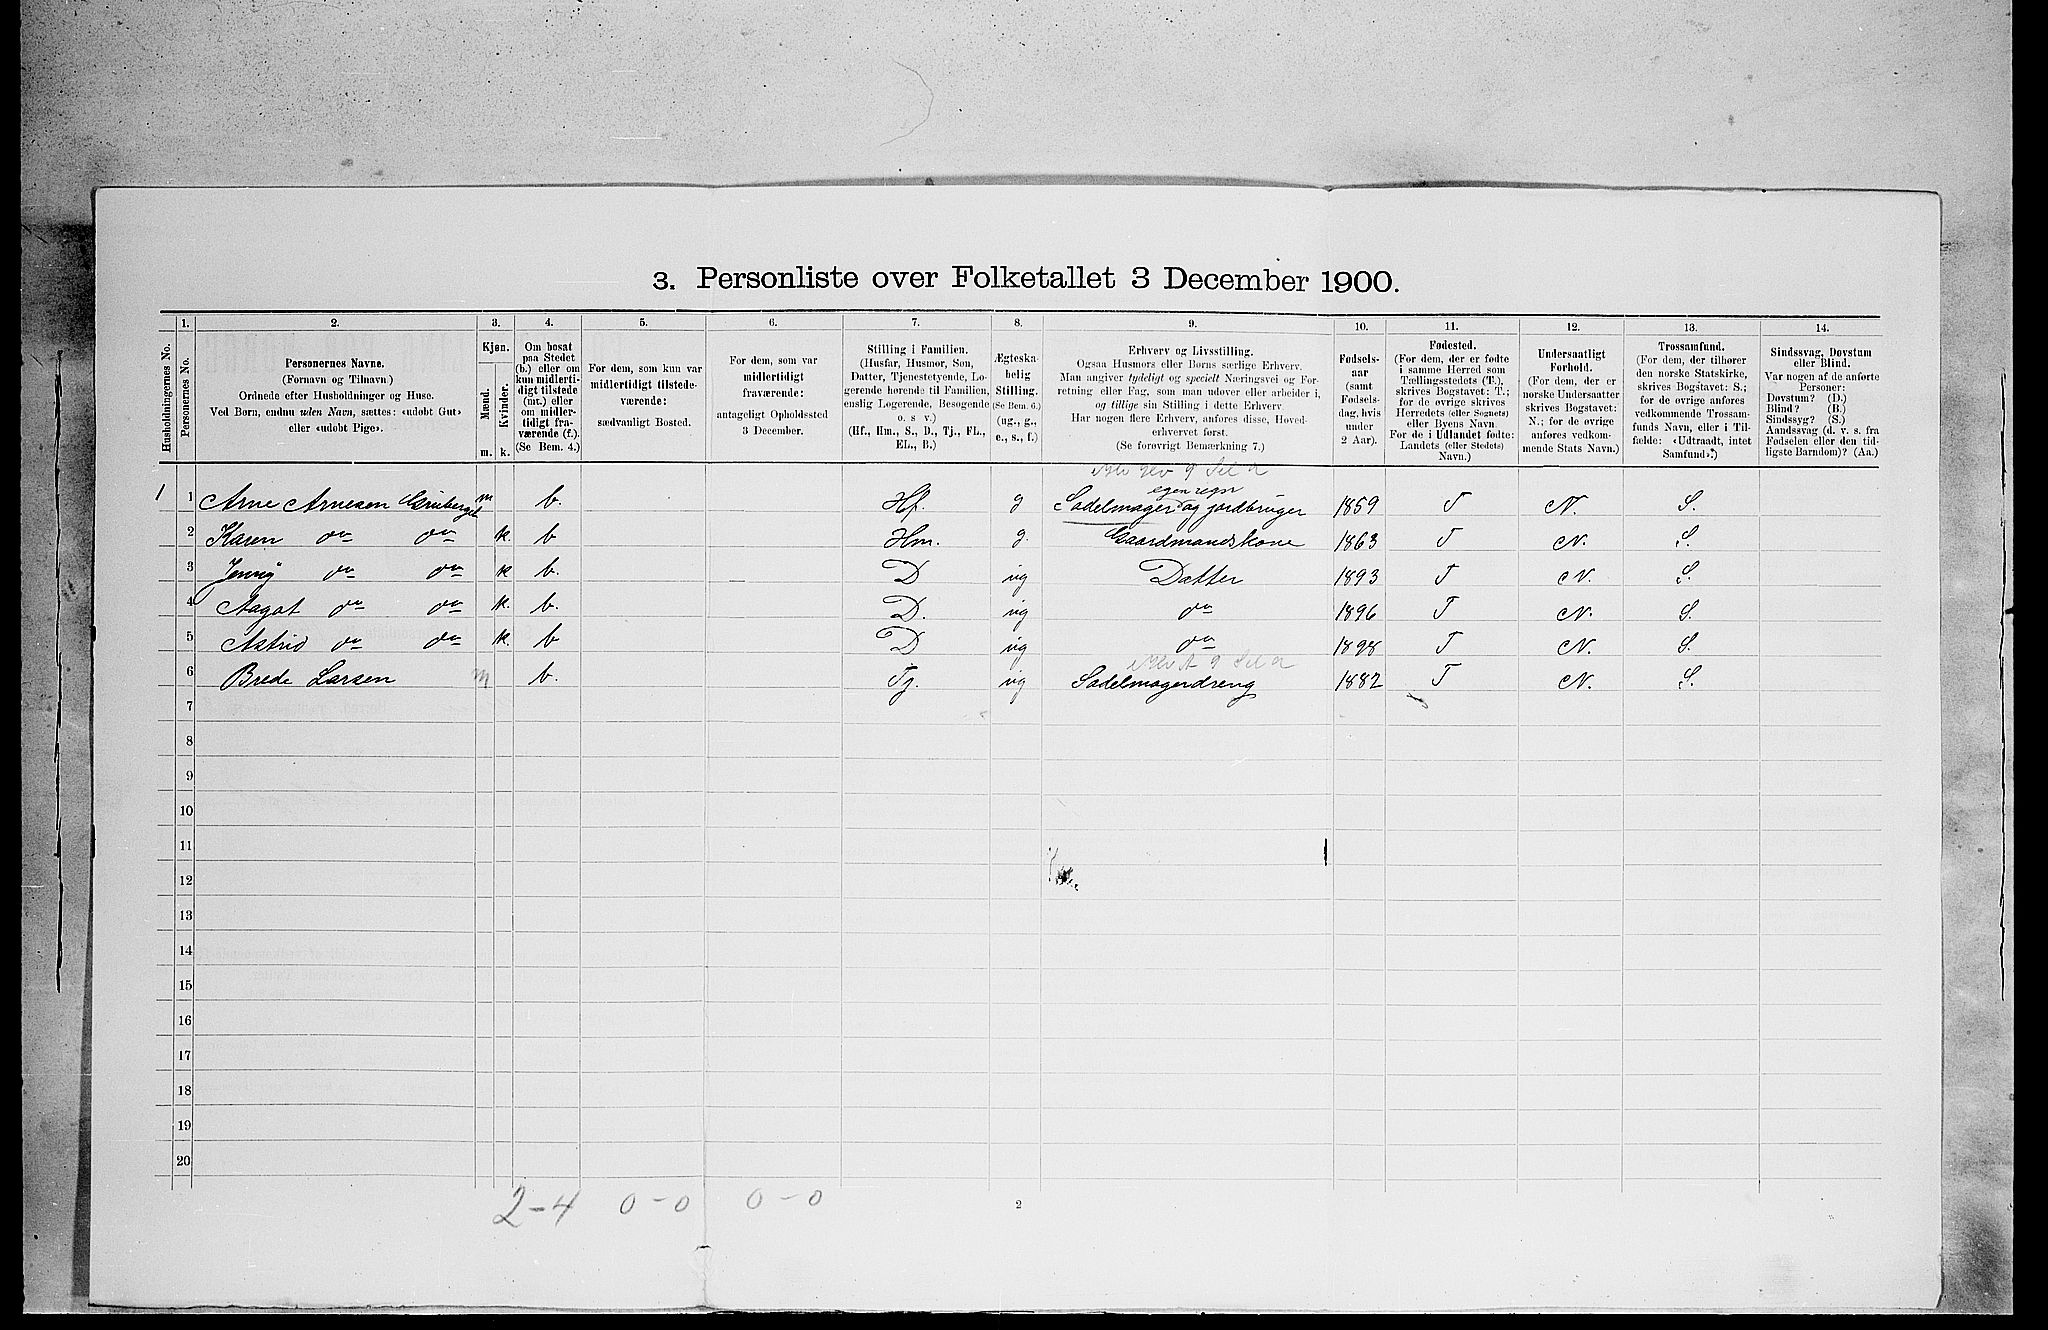 3. Personliste over Folketallet 3 December 1900.
1. 2. 3. 4. 5. 6. 7. 8. 9. 10. 11. 12. 13. 14.
Husholdningernes No.
Personernes No.
Personernes Navne.
(Fornavn og Tilnavn.)
Ordnede efter Husholdninger og Huse.
Ved Børn, endnu uden Navn, sættes: «udøbt Gut»
eller «udøbt Pige».
Kjøn.
Mænd.
Kvinder.
m. k.
Om bosat
paa Stedet
(b.) eller om
kun midlerti-
digt tilstede
(mt.) eller
om midler-
tidigt fra-
værende (f.).
(Se Bem. 4.)
For dem, som kun var
midlertidigt tilstede-
værende:
sædvanligt Bosted.
For dem, som var
midlertidigt
fraværende:
antageligt Opholdssted
3 December.
Stilling i Familien.
(Husfar, Husmor, Søn,
Datter, Tjenestetyende, Lo-
gerende hørende til Familien,
enslig Logerende, Besøgende
o. s. v.)
(Hf., Hm., S., D., Tj., FL.,
EL., B.)
Ægteska-
belig
Stilling.
(Se Bem. 6.)
(ug., g.,
e., s., f.)
Erhverv og Livsstilling.
Ogsaa Husmors eller Børns særlige Erhverv.
Man angiver tydeligt og specielt Næringsvei og For-
retning eller Fag, som man udøver eller arbeider i,
og tillige sin Stilling i dette Erhverv.
Har nogen flere Erhverv, anføres disse, Hoved-
erhvervet først.
(Se forøvrigt Bemærkning 7.)
Fødsels-
aar
(samt
Fødsels-
dag, hvis
under
2 Aar).
Fødested.
(For dem, der er fødte
i samme Herred som
Tællingsstedets (T.),
skrives Bogstavet: T.;
for de øvrige skrives
Herredets (eller Sognets)
eller Byens Navn.
For de i Udlandet fødte:
Landets (eller Stedets)
Navn.)
Undersaatligt
Forhold.
(For dem, der er
norske Undersaatter
skrives Bogstavet:
N.; for de øvrige
anføres vedkom-
mende Stats Navn.)
Trossamfund.
(For dem, der tilhører
den norske Statskirke,
skrives Bogstavet: S.;
for de øvrige anføres
vedkommende Trossam-
funds Navn, eller i Til-
fælde: «Udtraadt, intet
Samfund».)
Sindssvag, Døvstum
eller Blind.
Var nogen af de anførte
Personer:
Døvstum? (D.)
Blind? (B.)
Sindssyg? (S.)
Aandssvag (d. v. s. fra
Fødselen eller den tid-
ligste Barndom)? (Aa.)
egen regn
1 1 Arne Arnesen m b. Hf. g Sadelmager og jordbruger 1859 T N. S.
2 Karen do do k. b Hm. g. Gaardmandskone 1863 T N. S.
3 Jenny do do k b. D ug Datter 1893 T N. S.
4 Aagot do do k. b. D. ug do 1896 T N. S.
5 Astrid do do k. b D ug do 1898 T N. S.
6 Brede Larsen m b. Tj. ug Sadelmagerdreng 1882 T N. S.
7
8
9
10
11
12
13
14
15
16
17
18
19
20
2-4 0-0 0-0
2